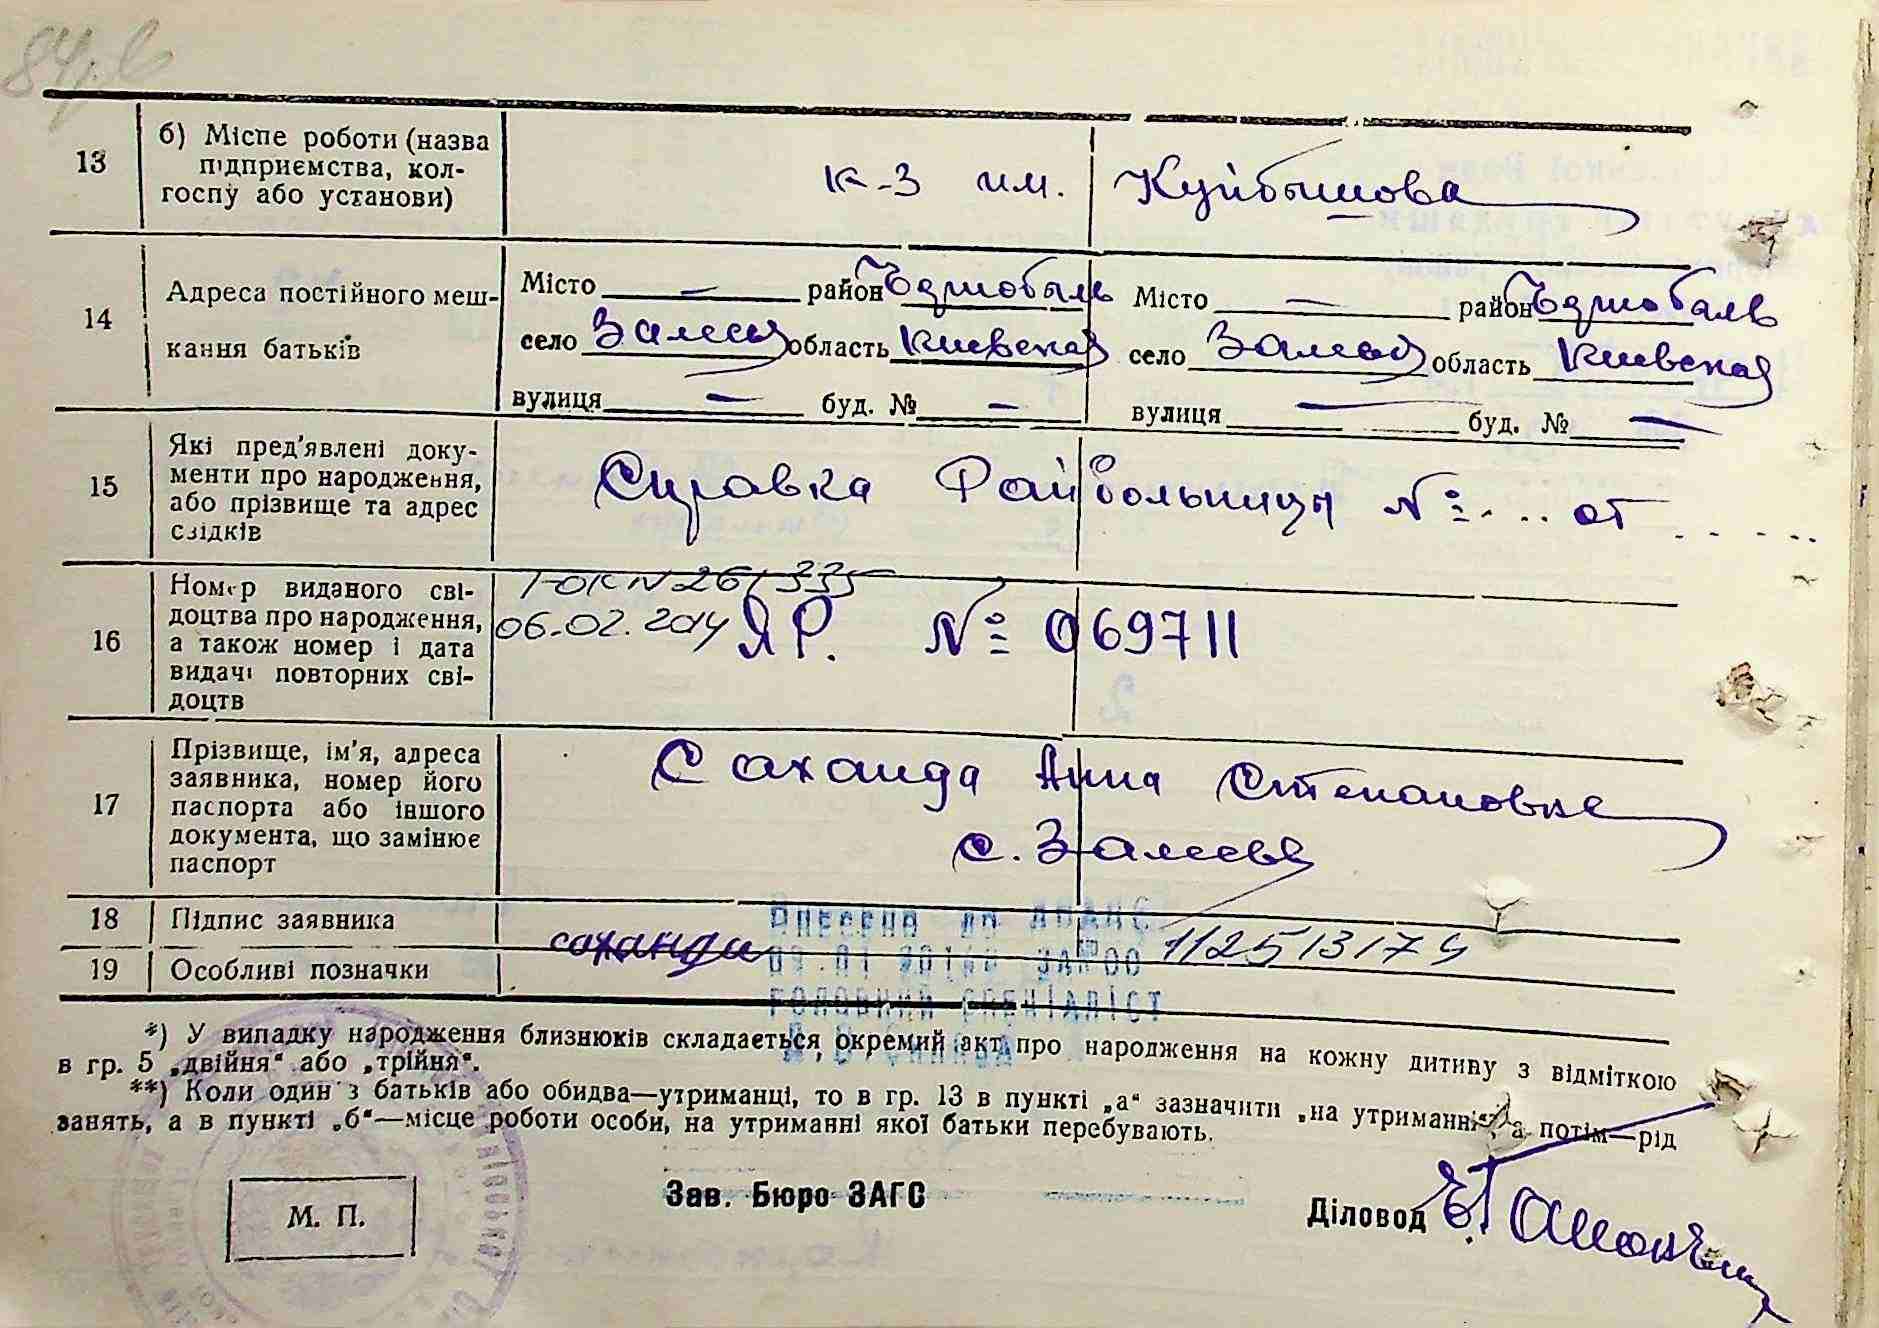 84.в
13 б) Місце роботи (назва
підприємства, кол-
госпу або установи)
к-з им. Куйбышова
14 Адреса постійного меш-
кання батьків
Місто — район Чернобыль Місто — район Чернобыль
село Залесье область Киевская село Залесье область Киевская
вулиця — буд. № — вулиця — буд. № —
15 Які пред'явлені доку-
менти про народження,
або прізвище та адрес
свідків
Справка Райбольницы №... от .....
16 Номер виданого сві-
доцтва про народження,
а також номер і дата
видачі повторних сві-
доцтв
1-ОК N 261335
06.02.2014 ЯР. № 069711
17 Прізвище, ім'я, адреса
заявника, номер його
паспорта або іншого
документа, що замінює
паспорт
Саханда Анна Степановна
с. Залесье
18 Підпис заявника
саханда
19 Особливі позначки
112513174
ВНЕСЕНО ДО
ГОЛОВНИЙ СПЕЦІАЛІСТ
*) У випадку народження близнюків складається окремий акт про народження на кожну дитину з відміткою
в гр. 5 „двійня“ або „трійня“.
**) Коли один з батьків або обидва—утриманці, то в гр. 13 в пункті „а“ зазначити „на утриманні“, а потім—рід
занять, а в пункті „б“—місце роботи особи, на утриманні якої батьки перебувають.
М. П.
Зав. Бюро ЗАГС
Діловод